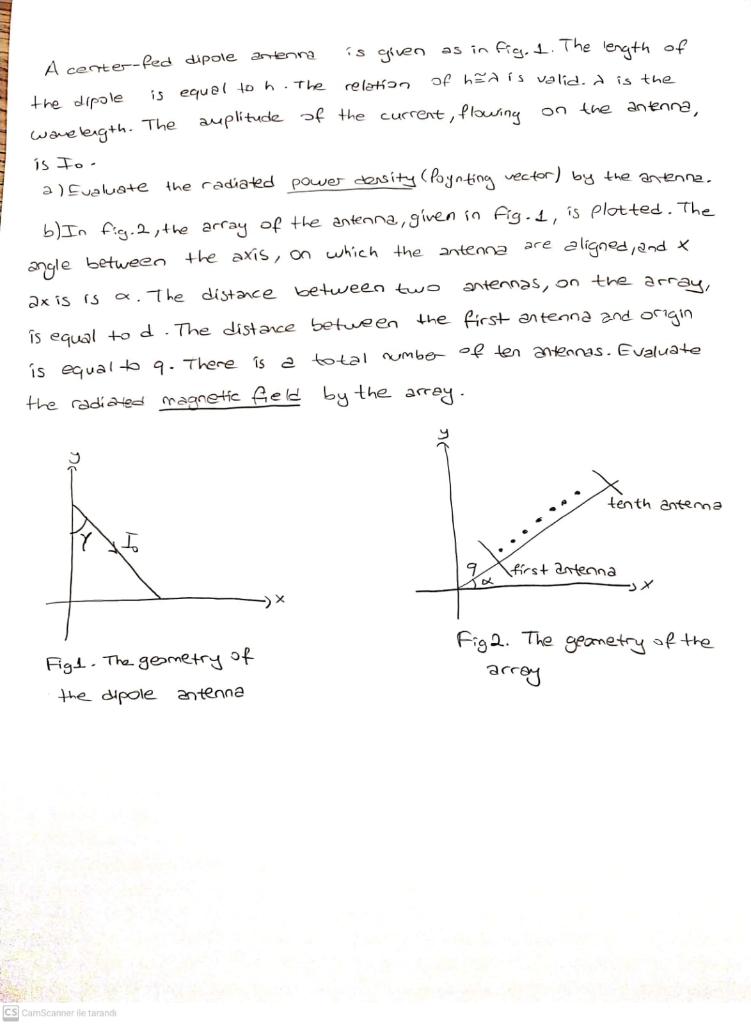 A center-fed dipole antenna is given as in fig. 1. The length of
the dipole is equal to h. The relation of h≅λ is valid. λ is the
wavelength. The amplitude of the current, flowing on the antenna,
is I₀.
a) Evaluate the radiated power density (Poynting vector) by the antenna.
b) In fig. 2, the array of the antenna, given in Fig. 1, is plotted. The
angle between the axis, on which the antenna are aligned, and x
axis is α. The distance between two antennas, on the array,
is equal to d. The distance between the first antenna and origin
is equal to q. There is a total number of ten antennas. Evaluate
the radiated magnetic field by the array.
y
γ
I₀
x
Fig 1. The geometry of
the dipole antenna
y
tenth antenna
q
α
first antenna
x
Fig 2. The geometry of the
array
CS CamScanner ile tarandı